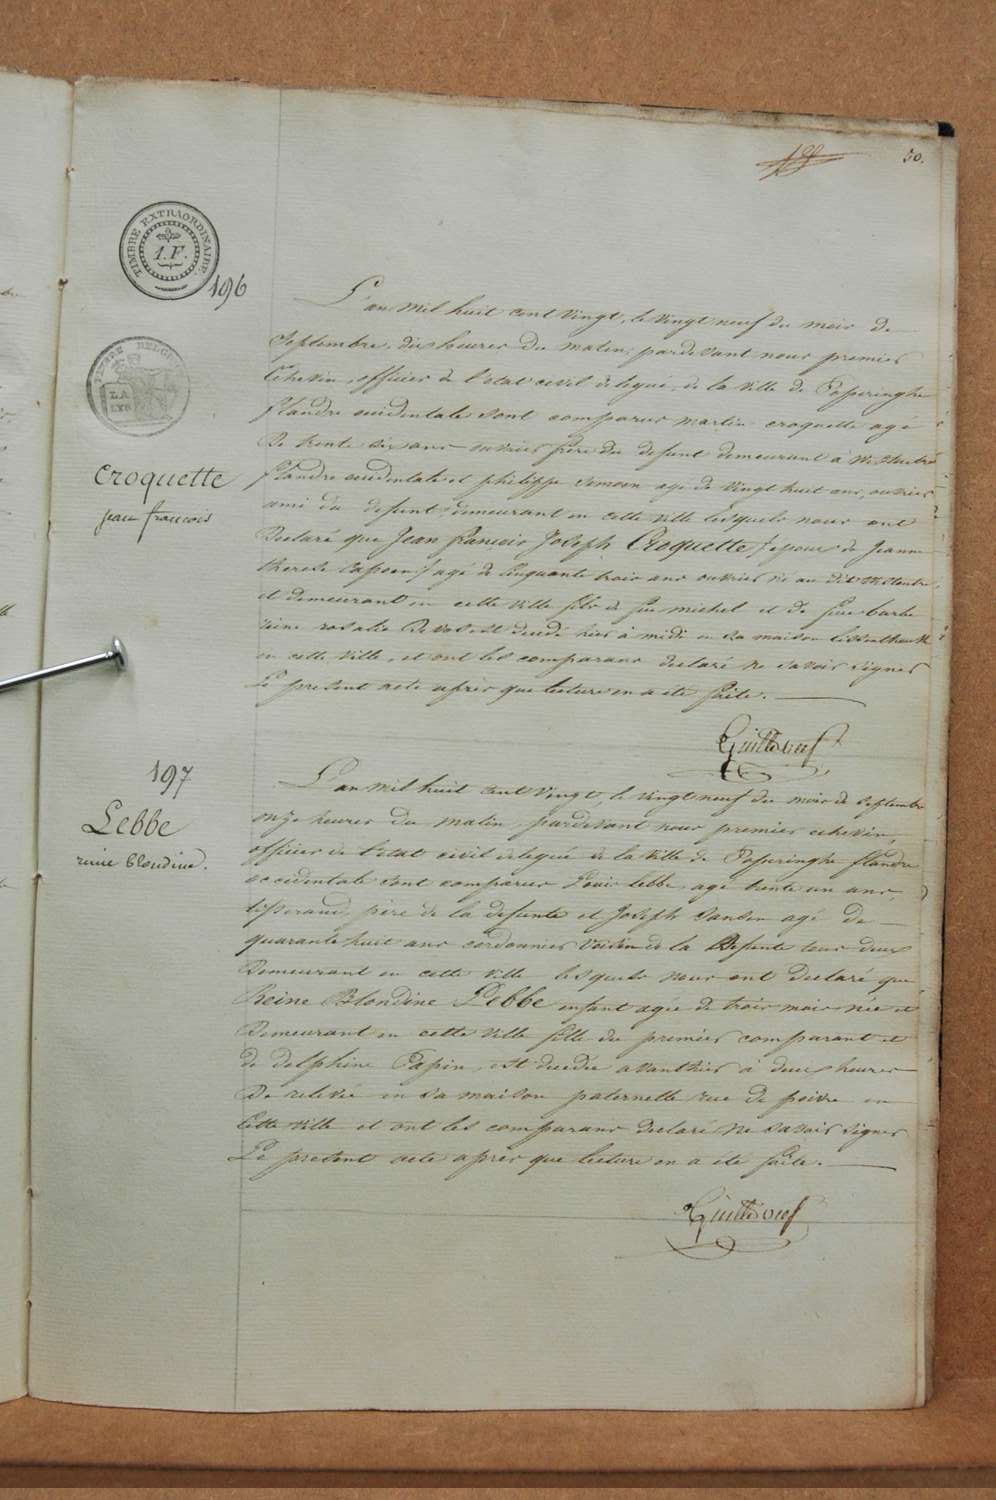 50.
TIMBRE EXTRAORDINAIRE.
1.F.
196
LA
LYS
Croquette
jean francois
L'an mil huit cent vingt, le vingt neuf du mois de
Septembre, dix heures du matin, pardevant nous premier
Echevin, officier de l'etat civil delegué, de la ville de Poperinghe
flandre occidentale sont comparus martin croquette agé
de trente six ans ouvrier frère du defunt demeurant à
flandre occidentale et philippe Simoen agé de vingt huit ans, ouvrier
ami du defunt, demeurant en cette ville lesquels nous ont
Declaré que Jean francois Joseph Croquette epoux de Jeanne
therese agé de Cinquante trois ans ouvrier né au dit
et demeurant en cette ville fils de feu michel et de feue barbe
reine rosalie est decedé hier à midi en sa maison
en cette ville, et ont les comparans declaré ne savoir signer
Le present acte après que lecture en a été faite.
197
Lebbe
reine blondine.
L'an mil huit cent vingt, le vingt neuf du mois de septembre
onze heures du matin, pardevant nous premier echevin,
officier de l'etat civil delegué de la ville de Poperinghe flandre
occidentale sont comparus Louis Lebbe, agé trente un ans,
tisserand, père de la defunte et Joseph Sansen agé de
quarante huit ans cordonnier Voisin de la Defunte tous deux
Demeurant en cette ville lesquels nous ont declaré que
Reine Blondine Lebbe enfant agée de trois mois née et
Demeurant en cette ville fille du premier comparant et
de delphine Papin, est decedée avanthier à deux heures
De relevée en sa maison paternelle rue de poivre en
Cette ville et ont les comparans declaré ne savoir signer
Le present acte après que lecture en a été faite.